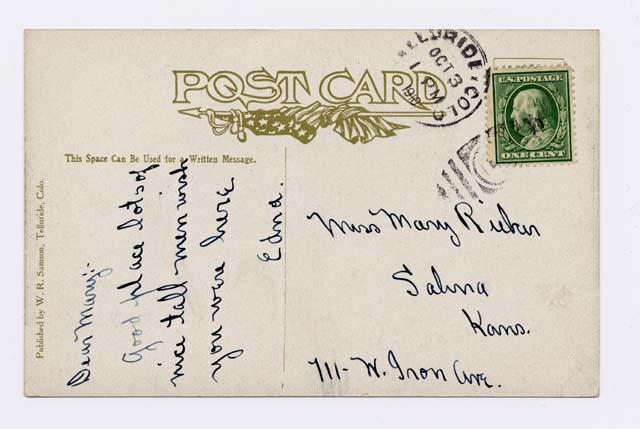 POST CARD
TELLURIDE, COLO
OCT 3
1 PM
U.S. POSTAGE
ONE CENT
This Space Can Be Used for a Written Message.
Published by W. R. Samson, Telluride, Colo.
Dear Mary:-
Good place lots of
nice tall men wish
you were here
Edna.
Miss Mary Rieker
Salina
Kans.
711- W. Iron Ave.